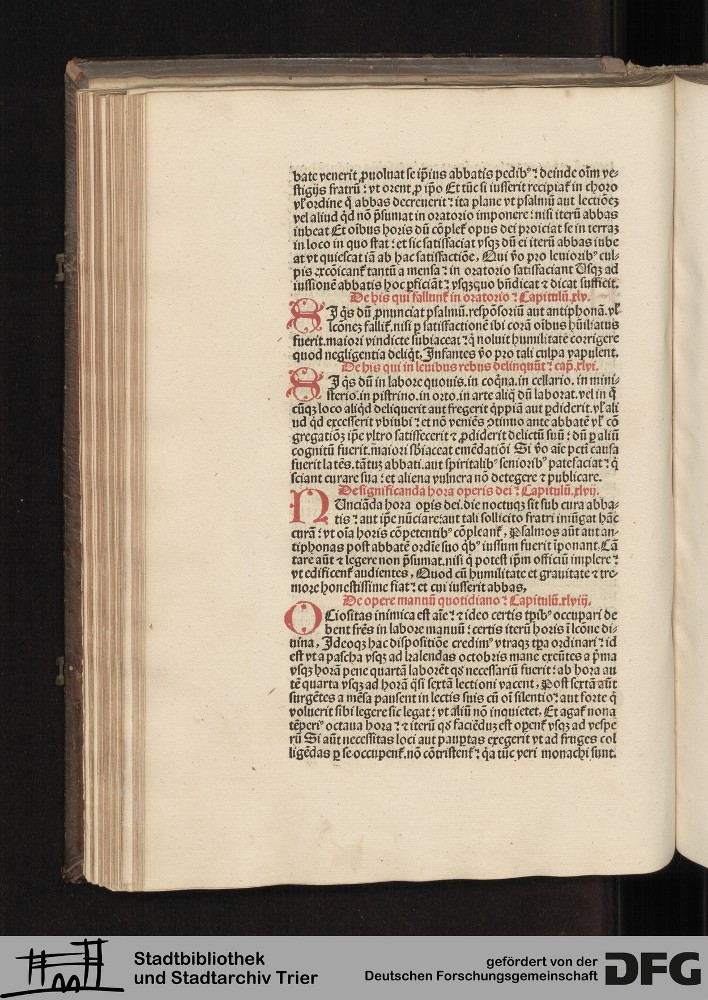 bate venerit ꝓuoluat se ip̄ius abbatis pedibꝰ ⁊ deinde oīm ve-
stigijs fratrū : vt orent ꝓ ip̄o Et tūc si iusserit recipiat̄ in choro
vl̓ ordine q̄ abbas decreuerit : ita plane vt psalmū aut lectionēz
vel aliud qd̄ nō p̄sumat in oratorio imponere : nisi iterū abbas
iubeat Et oībus horis dū cōplet̄ opus dei proiciat se in terraz
in loco in quo stat : et sic satisfaciat vsqꝫ dū ei iterū abbas iube
at vt quiescat iā ab hac satisfactiōe, Qui v̄o pro leuioribꝰ cul-
pis excōicant̄ tantū a mensa : in oratorio satisfaciant Usqꝫ ad
iussionē abbatis hoc ꝑficiāt : vsqꝫquo bn̄dicat ⁊ dicat sufficit.
De his qui fallunt̄ in oratorio : Capitulū.xlv.
SI q̄s dū ꝓnunciat psalmū.respōsoriū aut antiphonā.vl̓
lcōnez fallit̄.nisi ꝑ satisfactionē ibi corā oībus hūiliatus
fuerit.maiori vindicte subiaceat : q̄ noluit humilitate corrigere
quod negligentia deliq̄t, Infantes v̄o pro tali culpa vapulent.
De his qui in leuibus rebus delinquūt : cap̄.xlvi.
SI q̄s dū in labore quouis.in coq̄na.in cellario.in mini-
sterio.in pistrino.in orto.in arte aliq̄ dū laborat.vel in q̄
cūqꝫ loco aliqd̄ deliquerit aut fregerit q̄ppiā aut ꝑdiderit.vl̓ ali
ud qd̄ excesserit vbiubi : et nō veniēs ↄtinuo ante abbatē vl̓ cō
gregatiōz ip̄e vltro satisfecerit ⁊ ꝓdiderit delictū suū : dū ꝑ aliū
cognitū fuerit.maiori sb̄iaceat emēdatiōi Si v̄o aīe pctī causa
fuerit latēs.tātuz abbati.aut spiritalibꝰ senioribꝰ patefaciat : q̄
sciant curare sua : et aliena vulnera nō detegere ⁊ publicare.
De significanda hora operis dei : Capitulū.xlvij.
NUnciāda hora opis dei.die noctuqꝫ sit sub cura abba-
tis : aut ip̄e nūciare:aut tali sollicito fratri iniūgat hāc
curā : vt oīa horis cōpetentibꝰ cōpleant̄, Psalmos aūt aut an-
tiphonas post abbatē ordīe suo q̄bꝰ iussum fuerit īponant.Cā
tare aūt ⁊ legere non p̄sumat.nisi q̄ potest ip̄m officiū implere :
vt edificent̄ audientes, Quod cū humilitate et grauitate ⁊ tre-
more honestissime fiat : et cui iusserit abbas,
De opere manuū quotidiano : Capitulū.xlviij.
OCiositas inimica est aīe : ⁊ ideo certis tp̄ibꝰ occupari de
bent frēs in labore manuū : certis iterū horis ī lcōne di-
uina, Ideoqꝫ hac dispositiōe credimꝰ vtraqꝫ tp̄a ordinari : id
est vt a pascha vsqꝫ ad kalendas octobris mane exeūtes a p̄ma
vsqꝫ horā pene quartā laborēt qd̓ necessariū fuerit : ab hora au
tē quarta vsqꝫ ad horā q̄si sextā lectioni vacent, Post sextā aūt
surgētes a mēsa pausent in lectis suis cū oī silentio: aut forte q̄
voluerit sibi legere sic legat : vt aliū nō inquietet, Et agat̄ nona
tēperiꝰ octaua hora : ⁊ iterū qd̓ faciēduꝫ est operent̄ vsqꝫ ad vespe
rū Si aūt necessitas loci aut pauꝑtas exegerit vt ad fruges col
ligēdas ꝑ se occupent̄.nō cōtristent̄ : q̄a tūc veri monachi sunt.
Stadtbibliothek
und Stadtarchiv Trier
gefördert von der
Deutschen Forschungsgemeinschaft
DFG